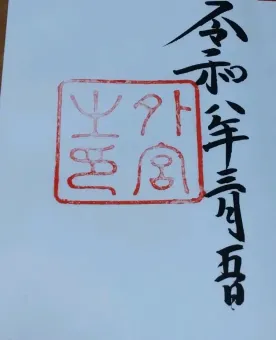 令和八年三月五日
外宮
之印